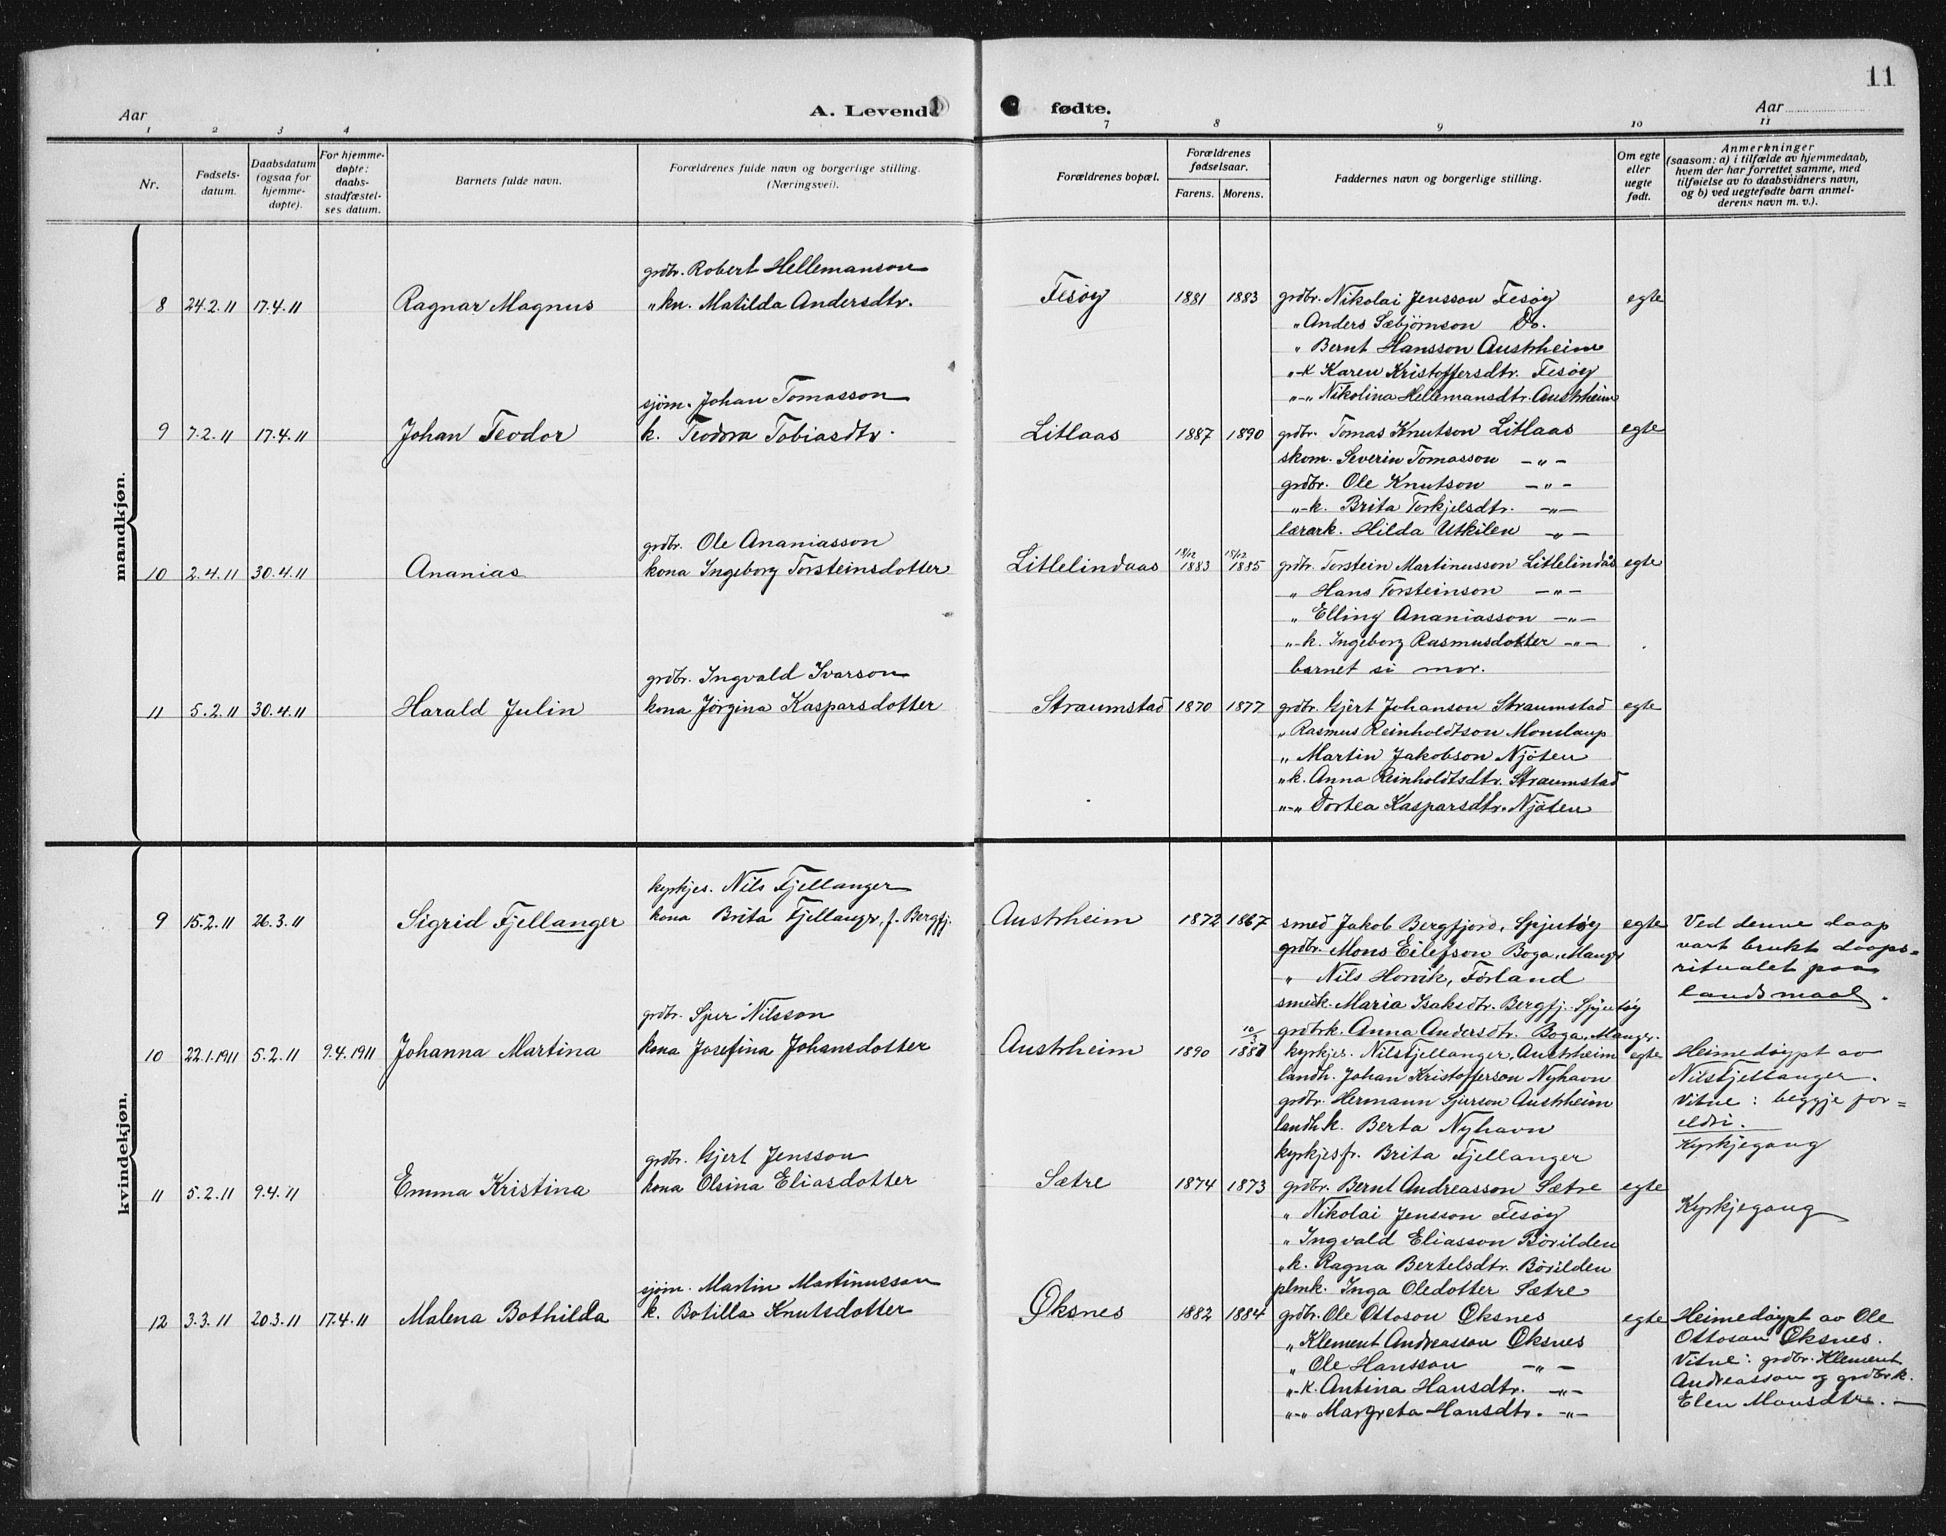 11
Aar
A. Levende
fødte.
Aar
1 2 3 4 7 8 9 10 11
Nr.
Fødsels-
datum.
Daabsdatum
(ogsaa for
hjemme-
døpte).
For hjemme-
døpte:
daabs-
stadfæstel-
ses datum.
Barnets fulde navn.
Forældrenes fulde navn og borgerlige stilling.
(Næringsvei).
Forældrenes bopæl.
Forældrenes
fødselsaar.
Farens. Morens.
Faddernes navn og borgerlige stilling.
Om egte
eller
uegte
født.
Anmerkninger
(saasom: a) i tilfælde av hjemmedaab,
hvem der har forrettet samme, med
tilføielse av to daabsvidners navn,
og b) ved uegtefødte barn anmel-
derens navn m. v.).
mandkjøn.
grdbr. Robert Hellemanson
8 24.2.11 17.4.11 Ragnar Magnus „kn. Matilda Andersdtr. Fesøy 1881 1883 grdbr. Nikolai Jensson Fesøy egte
„ Anders Sæbjørnson Do.
„ Bernt Hansson Austrheim
„-k Karen Kristoffersdtr. Fesøy
„-„ Nikolina Hellemansdtr. Austrheim
sjøm. Johan Tomasson
9 7.2.11 17.4.11 Johan Teodor k. Teodora Tobiasdtr. Litlaas 1887 1890 grdbr. Tomas Knutson Litlaas egte
skom. Severin Tomasson -„-
grdbr. Ole Knutson -„-
„-k. Brita Torkjelsdtr. -„-
lærark. Hilda Utkilen -„-
grdbr. Ole Ananiasson
10 2.4.11 30.4.11 Ananias kona Ingeborg Torsteinsdotter Litlelindaas 18/12 1883 15/12 1885 grdbr. Torstein Martinusson Litlelindås egte
„ Hans Torsteinson -„-
„ Elling Ananiasson -„-
„-k. Ingeborg Rasmusdotter -„-
barnet si mor.
grdbr. Ingvald Ivarson
11 5.2.11 30.4.11 Harald Julin kona Jørgina Kasparsdotter Straumstad 1870 1877 grdbr. Gjert Johanson Straumstad egte
„ Rasmus Reinholdtson Monslaup
„ Martin Jakobson Njøten
„k. Anna Reinholdtsdtr. Straumstad
„-„ Dortea Kasparsdtr. Njøten
kvindekjøn.
kyrkjes. Nils Fjellanger
9 15.2.11 26.3.11 Sigrid Fjellanger kona Brita Fjellangr, f. Bergfj. Austrheim 1872 1867 smed Jakob Bergfjord, Spjutøy egte Ved denne daap
grdbr. Mons Eilefson Boga, Mangr vart brukt daaps-
„ Nils Horvik, Førland ritualet paa
smedk. Maria Isaksdtr. Bergfj. Spjutøy landsmaal.
grdbrk. Anna Andersdtr. Boga, Mangr.
grdbr. Sjur Nilsson
10 22.1.1911 5.2.11 9.4.1911 Johanna Martina kona Josefina Johansdotter Austrheim 1890 1887 kyrkjes. Nils Fjellanger, Austrheim egte Heimedøypt av
landh. Johan Kristofferson Nyhavn Nils Fjellanger.
grdbr. Hermann Sjurson Austrheim Vitne: beggje for-
landhk. Berta Nyhavn eldri.
kyrkjesfr. Brita Fjellanger Kyrkjegang
grdbr. Gjert Jensson
11 5.2.11 9.4.11 Emma Kristina kona Olsina Eliasdotter Sætre 1874 1873 grdbr. Bernt Andreasson Sætre egte
„ Nikolai Jensson Fesøy Kyrkjegang
„ Ingvald Eliasson Börilden
„k. Ragna Bertelsdtr. Börilden
plmk. Inga Oledotter Sætre
sjøm. Martin Martinusson
12 3.3.11 20.3.11 17.4.11 Malena Bothilda k. Botilla Knutsdotter Øksnes 1882 1884 grdbr. Ole Ottoson Øksnes egte Heimedøypt av Ole
„ Klement Andreasson Øksnes Ottosan Øksnes.
„ Ole Hansson -„- Vitne: grdbr. Klement
„-k. Antina Hansdtr. -„- Andreasson og grdbrk.
„-„ Margreta Hansdtr. -„- Elen Monsdtr.